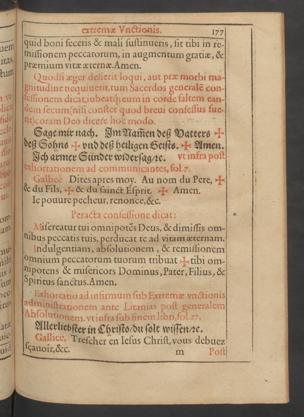 extremæ Vnctionis. 177
quid boni feceris & mali sustinueris, sit tibi in re-
missionem peccatorum, in augmentum gratiæ, &
præmium vitæ æternæ. Amen.
Quodsi æger desierit loqui, aut præ morbi ma-
gnitudine nequiuerit, tum Sacerdos generalē con-
fessionem dicat, iubeatq́; eum in corde saltem ean-
dem secum, nisi constet quod breui confessus fue-
rit: coram Deo dicere hoc modo.
Sage mir nach. Im Namen deß Vatters ✠
deß Sohns ✠ vnd deß heiligen Geists. ✠ Amen.
Ich armer Sünder widersag, ꝛc. vt infra post
exhortationem ad communicantes, fol. 7.
Gallicè Dites apres moy. Au nom du Pere, ✠
& du Fils, ✠ & du sainct Esprit. ✠ Amen.
Ie pouure pecheur, renonce, &c.
Peracta confessione dicat:
Misereatur tui omnipotēs Deus, & dimissis om-
nibus peccatis tuis, perducat te ad vitam æternam.
Indulgentiam, absolutionem, & remissionem
omnium peccatorum tuorum tribuat ✠ tibi om-
nipotens & misericors Dominus, Pater, Filius, &
Spiritus sanctus. Amen.
Exhortatio ad infirmum sub Extremæ vnctionis
administratione ante Litanias post generalem
Absolutionem, vt infra sub finem libri, fol. 27.
Allerliebster in Christo du solt wissen ꝛc.
Gallicè, Trescher en Iesus Christ, vous debuez
sçauoir, &c.
m Post